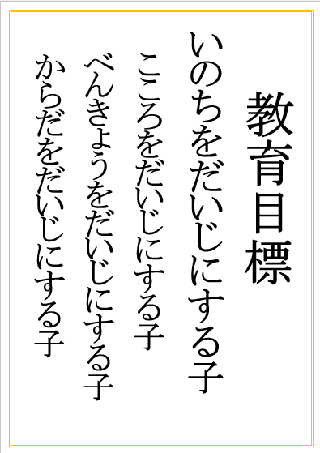 教育目標
いのちをだいじにする子
こころをだいじにする子
べんきょうをだいじにする子
からだをだいじにする子